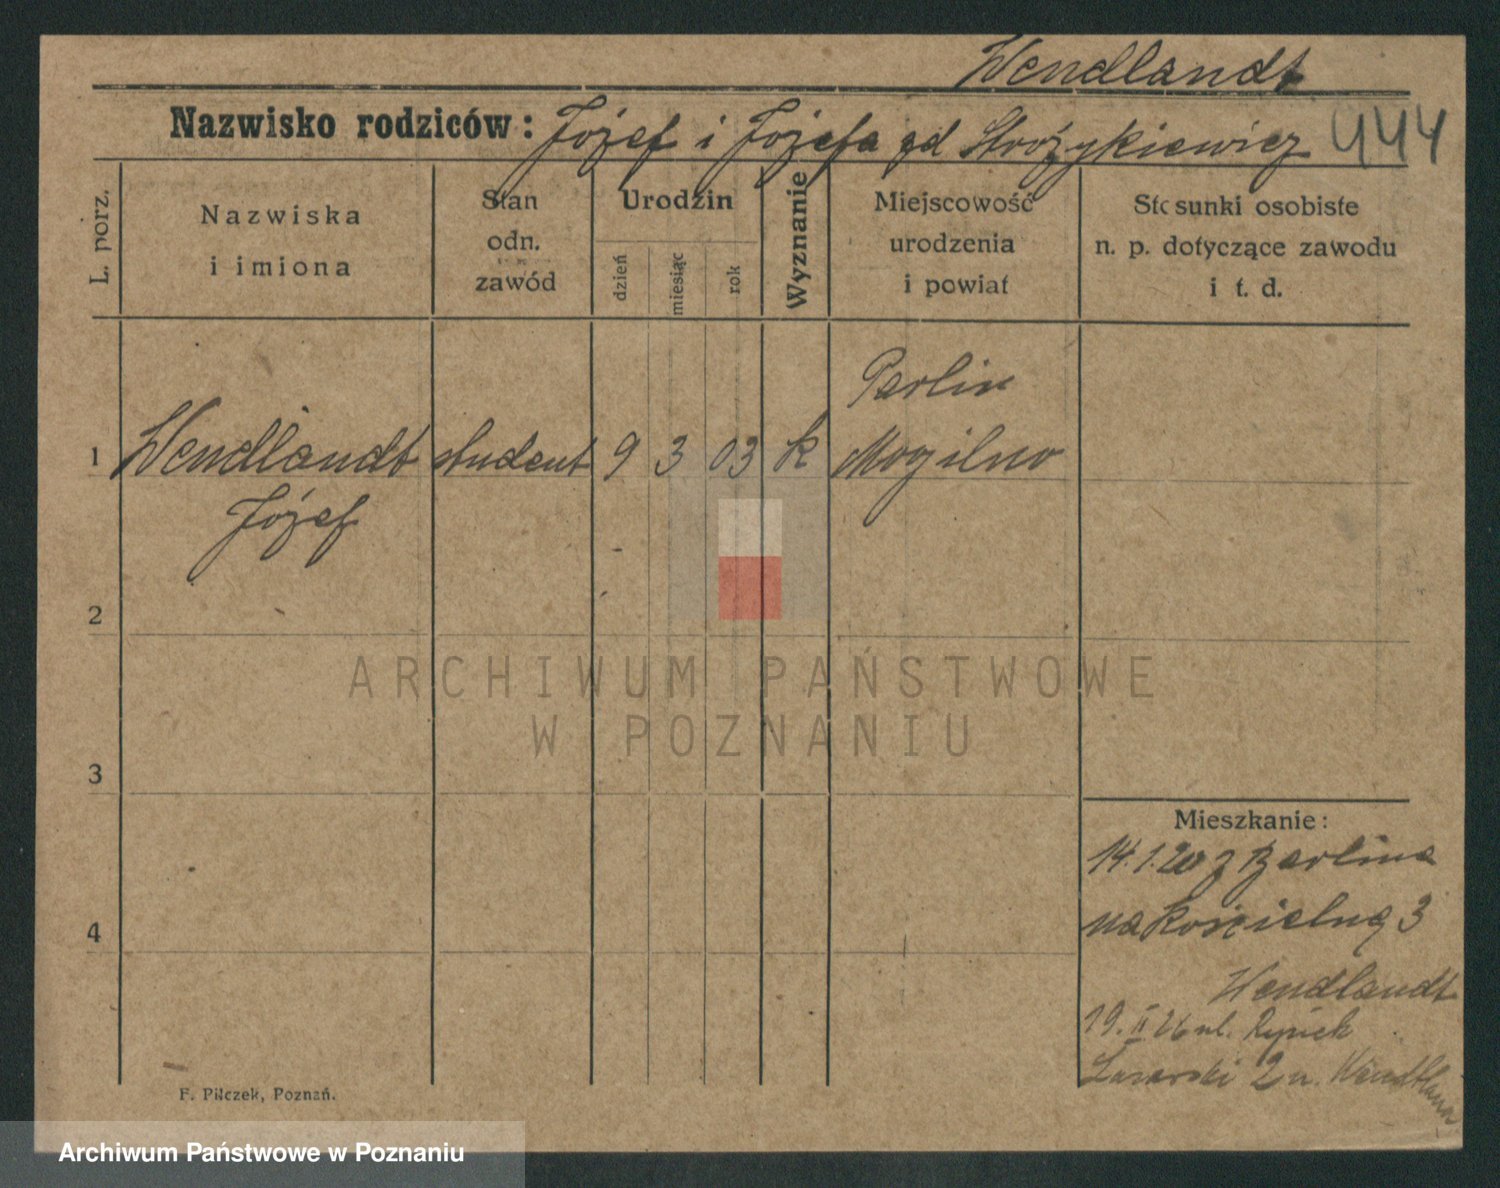 Wendlandt
Nazwisko rodziców: Józef i Józefa zd Stróżykiewicz 444
L. porz.
Nazwiska
i imiona
Stan
odn.
zawód
Urodzin
dzień
miesiąc
rok
Wyznanie
Miejscowość
urodzenia
i powiat
Stosunki osobiste
n. p. dotyczące zawodu
i t. d.
Parlin
1 Wendlandt student 9 3 03 k Mogilno
Józef
2
ARCHIWUM PAŃSTWOWE
W POZNANIU
3
Mieszkanie:
14.1.20 z Berlina
na Kościelną 3
4
Wendlandt
19.II 26 ul. Rynek
Łazarski 2 u. Wendtland
F. Pilczek, Poznań.
Archiwum Państwowe w Poznaniu